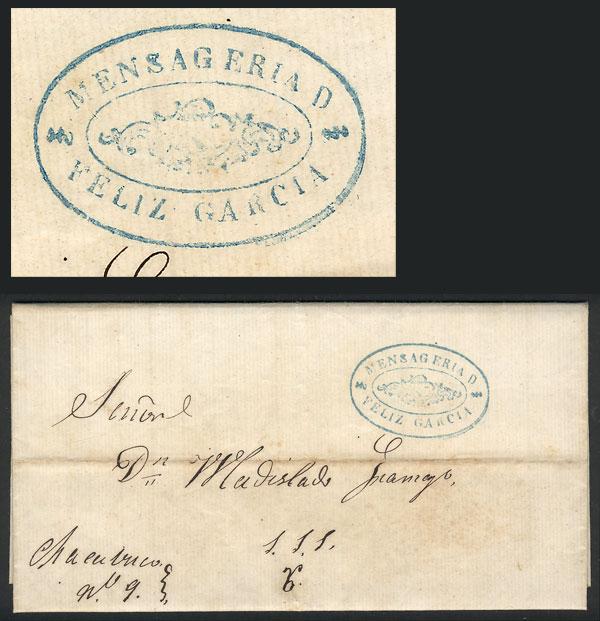 MENSAGERIA D
FELIZ GARCIA
MENSAGERIA D
FELIZ GARCIA
Señor
Dn Wladislado
S. S. S.
nº 9.